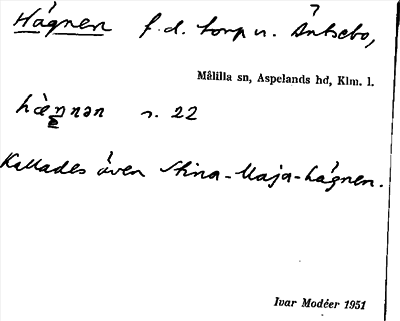 Hägnen f.d. torp u. Äntsebo,
Målilla sn, Aspelands hd, Klm. l.
hæ̀nnən s. 22
Kallades även Stina-Maja-hägnen.
Ivar Modéer 1951